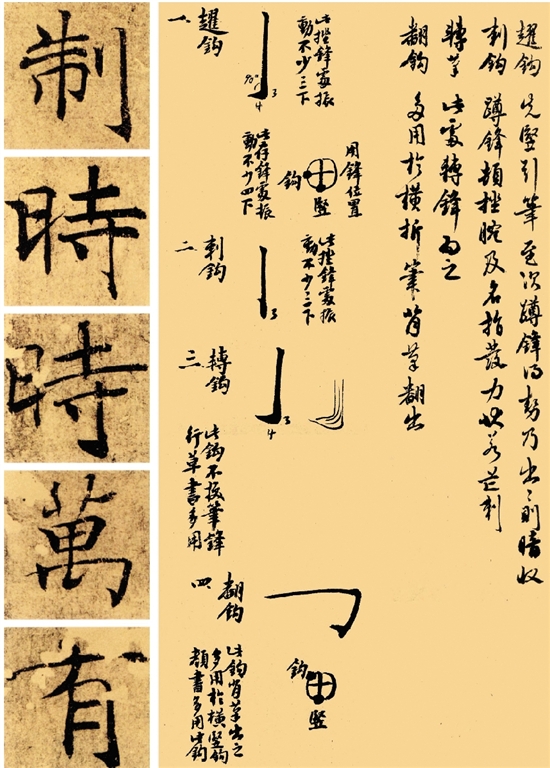 趯鈎 先竪引筆至次蹲鋒得勢乃出出則暗收
刺鈎 蹲鋒頓挫腕及名指發力此若芒刺
轉筆 此處轉鋒為之
翻鈎 多用於橫折筆背筆翻出
一、趯鈎
此挫鋒處振
動不少三下
90°
3
4
用鋒位置
鈎
竪
此存鋒處振
動不少四下
二、刺鈎
此挫鋒處振
動不少三下
3
三、轉鈎
3
4
此鈎不按筆鋒
行草書多用
四、翻鈎
鈎
竪
此鈎背筆出之
多用於橫竪鈎
顏書多用此鈎
制
時
時
萬
有